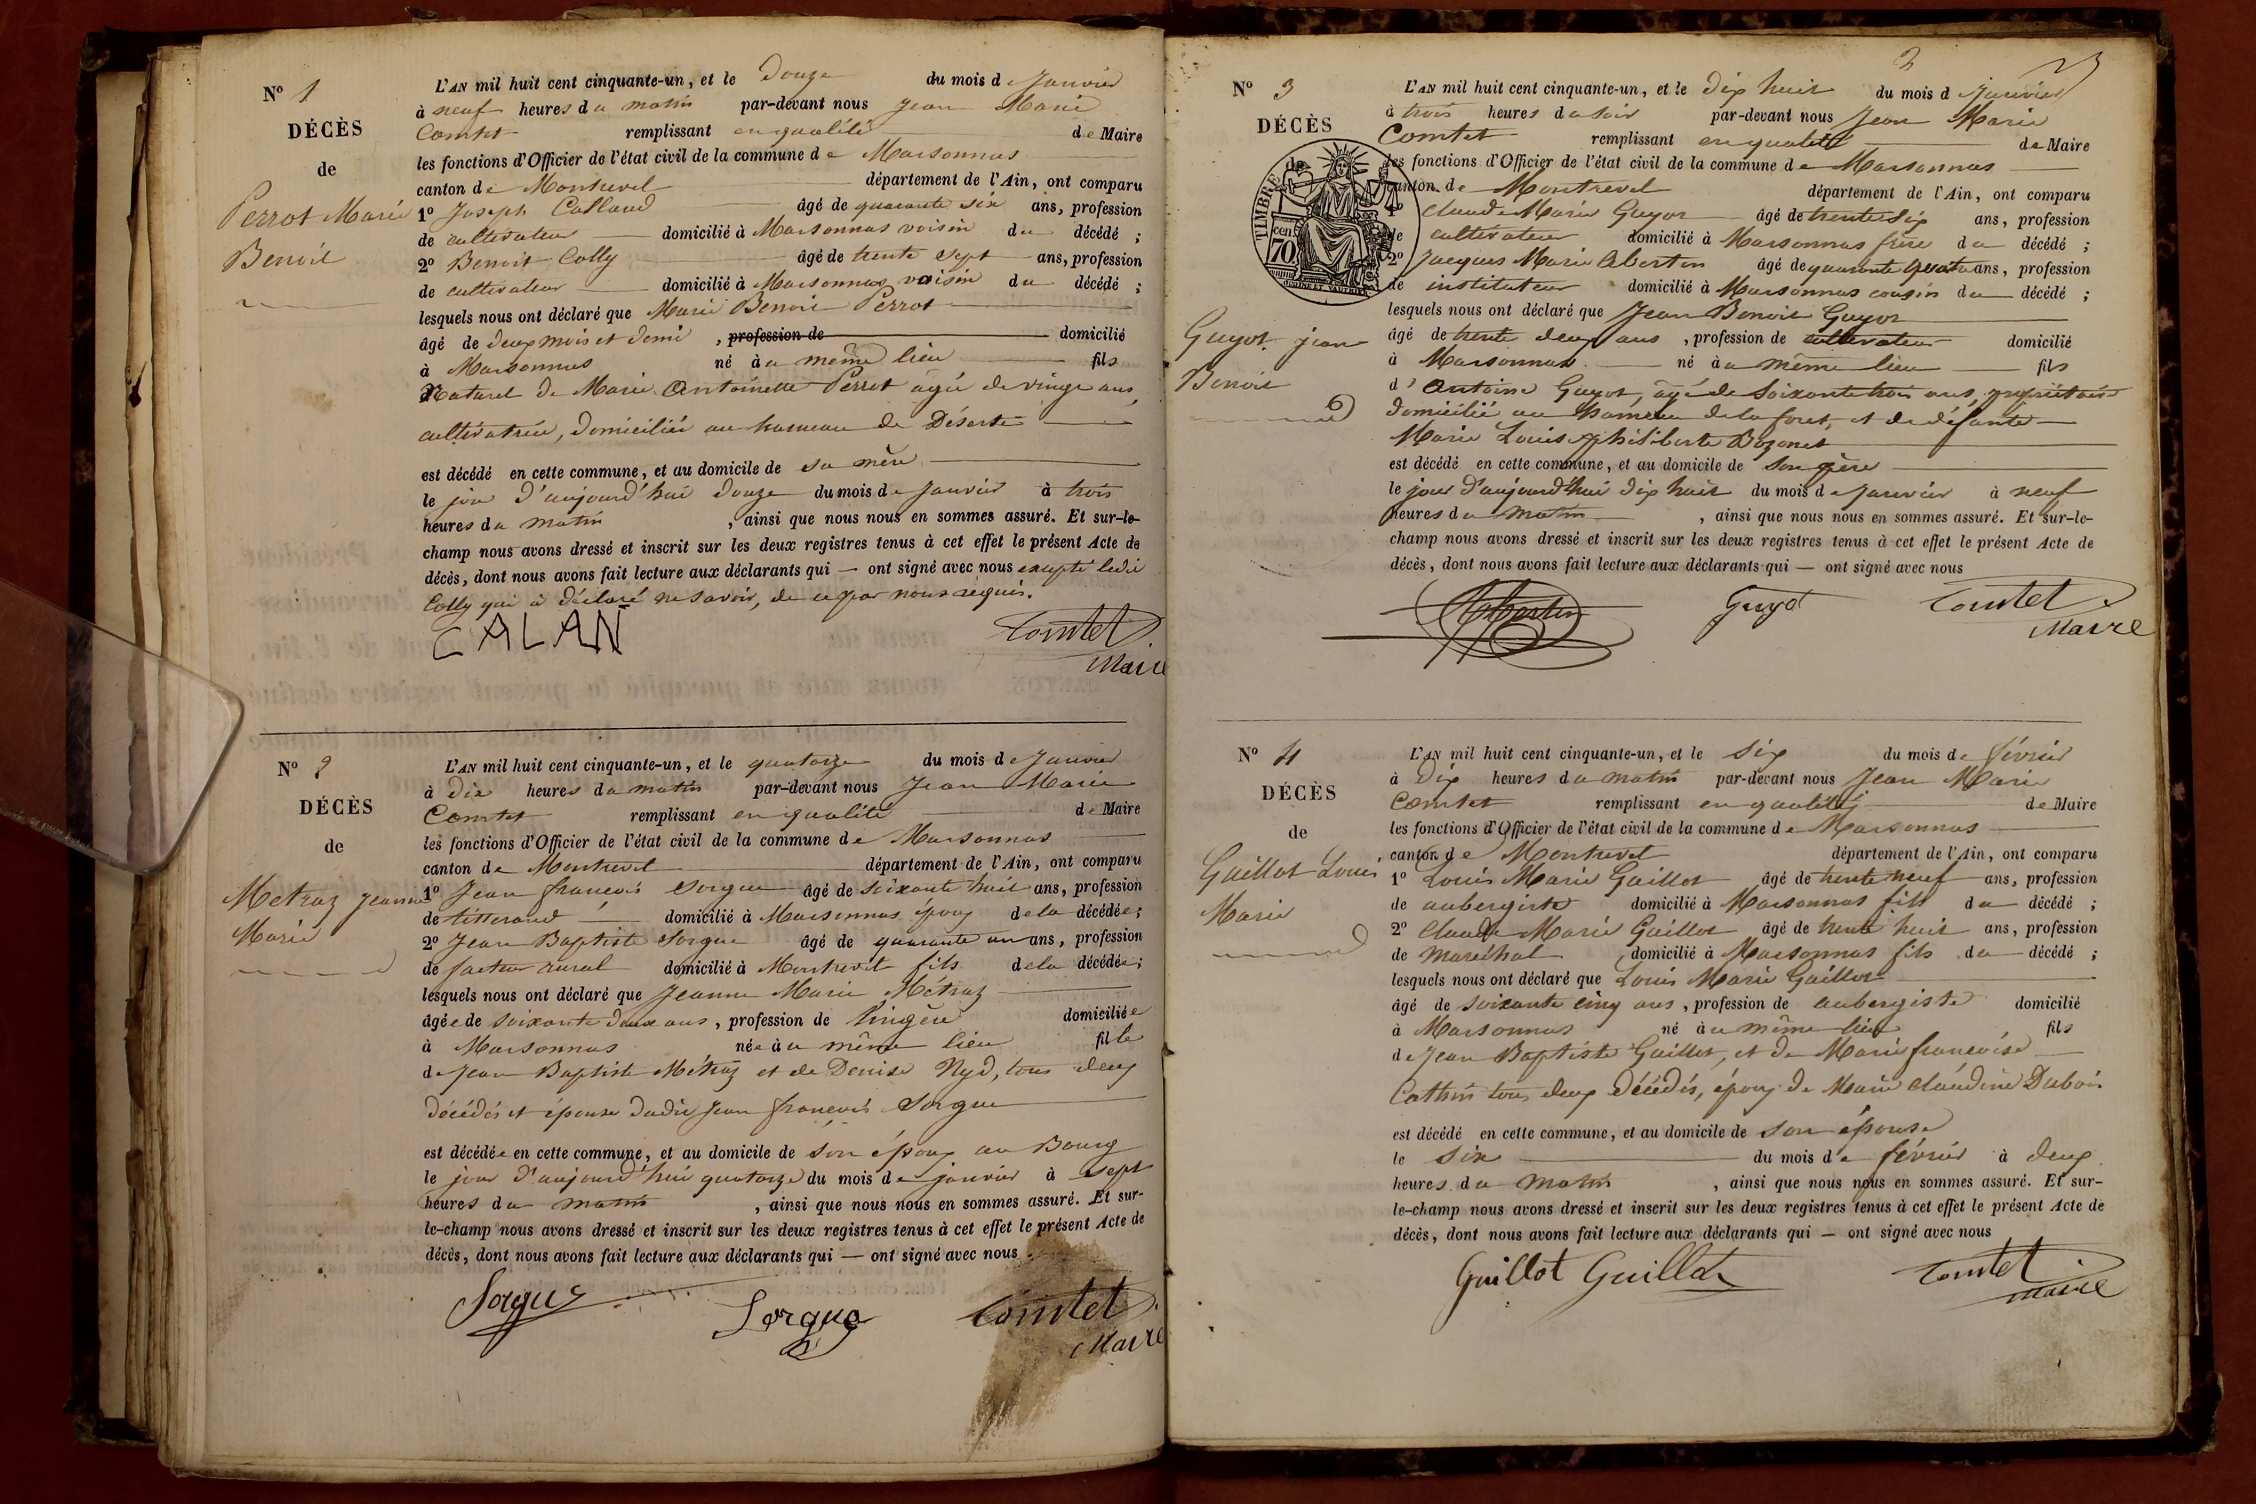 Nº 1
DÉCÈS
de
Perrot Marie
Benoit
L'AN mil huit cent cinquante-un, et le Douze du mois de Janvier
à neuf heures du matin par-devant nous Jean Marie
Comtet remplissant en qualité de Maire
les fonctions d'Officier de l'état civil de la commune de Marsonnas
canton de Montrevel département de l'Ain, ont comparu
1º Joseph Calland âgé de quarante six ans, profession
de cultivateur domicilié à Marsonnas voisin du décédé ;
2º Benoit Colly âgé de trente sept ans, profession
de cultivateur domicilié à Marsonnas voisin du décédé ;
lesquels nous ont déclaré que Marie Benoit Perrot
âgé de deux mois et demi , profession de domicilié
à Marsonnas né à u même lieu fils
Naturel de Marie Antoinette Perrot agée de vingt ans,
cultivatrice, domiciliée au hameau de Déserte
est décédé en cette commune, et au domicile de sa mère
le jour d'aujourd'hui douze du mois de Janvier à trois
heures du matin , ainsi que nous nous en sommes assuré. Et sur-le-
champ nous avons dressé et inscrit sur les deux registres tenus à cet effet le présent Acte de
décès, dont nous avons fait lecture aux déclarants qui — ont signé avec nous excepté ledit
Colly qui a déclaré ne savoir, de ce par nous requis.
CALAN Comtet
Maire
Nº 2
DÉCÈS
de
Metraz Jeanne
Marie
L'AN mil huit cent cinquante-un, et le quatorze du mois de Janvier
à dix heures du matin par-devant nous Jean Marie
Comtet remplissant en qualité de Maire
les fonctions d'Officier de l'état civil de la commune de Marsonnas
canton de Montrevel département de l'Ain, ont comparu
1º Jean françois Sorgue âgé de soixante huit ans, profession
de titterand domicilié à Marsonnas époux de la décédée ;
2º Jean Baptiste Sorgue âgé de quarante un ans, profession
de facteur rural domicilié à Montrevel fils de la décédée ;
lesquels nous ont déclaré que Jeanne Marie Métraz
âgée de soixante deux ans , profession de lingère domiciliée
à Marsonnas née à u même lieu fille
de Jean Baptiste Métraz et de Denise Nyd, tous deux
décédés et épouse dudit Jean françois Sorgue
est décédée en cette commune, et au domicile de son époux au Bourg
le jour d'aujourd'hui quatorze du mois de janvier à sept
heures du matin , ainsi que nous nous en sommes assuré. Et sur-
le-champ nous avons dressé et inscrit sur les deux registres tenus à cet effet le présent Acte de
décès, dont nous avons fait lecture aux déclarants qui — ont signé avec nous
Sorgue Sorgue Comtet
Maire
2
Nº 3
DÉCÈS
de
TIMBRE
70 cen
Guyot jean
Benoit
L'AN mil huit cent cinquante-un, et le dix huit du mois d Janvier
à trois heures du soir par-devant nous Jean Marie
Comtet remplissant en qualité de Maire
les fonctions d'Officier de l'état civil de la commune de Marsonnas
canton de Montrevel département de l'Ain, ont comparu
1º Claude Marie Guyot âgé de trente six ans, profession
de cultivateur domicilié à Marsonnas frère du décédé ;
2º Jacques Marie Aberton âgé de quarante quatre ans, profession
de instituteur domicilié à Marsonnas cousin du décédé ;
lesquels nous ont déclaré que Jean Benoit Guyot
âgé de trente deux ans , profession de cultivateur domicilié
à Marsonnas né à u même lieu fils
d' Antoine Guyot, agé de soixante trois ans, propriétaire
domicilié au hameau de la foret, et de défunte
Marie Louise philiberte Bozonet
est décédé en cette commune, et au domicile de son père
le jour d'aujourd'hui dix huit du mois de Janvier à neuf
heures du matin , ainsi que nous nous en sommes assuré. Et sur-le-
champ nous avons dressé et inscrit sur les deux registres tenus à cet effet le présent Acte de
décès, dont nous avons fait lecture aux déclarants qui — ont signé avec nous
Guyot Comtet
Maire
Nº 4
DÉCÈS
de
Guillot Louis
Marie
L'AN mil huit cent cinquante-un, et le six du mois de février
à dix heures du matin par-devant nous Jean Marie
Comtet remplissant en qualité de Maire
les fonctions d'Officier de l'état civil de la commune de Marsonnas
canton de Montrevel département de l'Ain, ont comparu
1º Louis Marie Guillot âgé de trente neuf ans, profession
de aubergiste domicilié à Marsonnas fils du décédé ;
2º Claude Marie Guillot âgé de trente huit ans, profession
de maréchal domicilié à Marsonnas fils du décédé ;
lesquels nous ont déclaré que Louis Marie Guillot
âgé de soixante cinq ans , profession de aubergiste domicilié
à Marsonnas né à u même lieu fils
de Jean Baptiste Guillot, et de Marie françoise
Cathin tous deux décédés, époux de Marie Claudine Dubois
est décédé en cette commune, et au domicile de son épouse
le six du mois de février à deux
heures du matin , ainsi que nous nous en sommes assuré. Et sur-
le-champ nous avons dressé et inscrit sur les deux registres tenus à cet effet le présent Acte de
décès, dont nous avons fait lecture aux déclarants qui — ont signé avec nous
Guillot Guillot Comtet
Maire